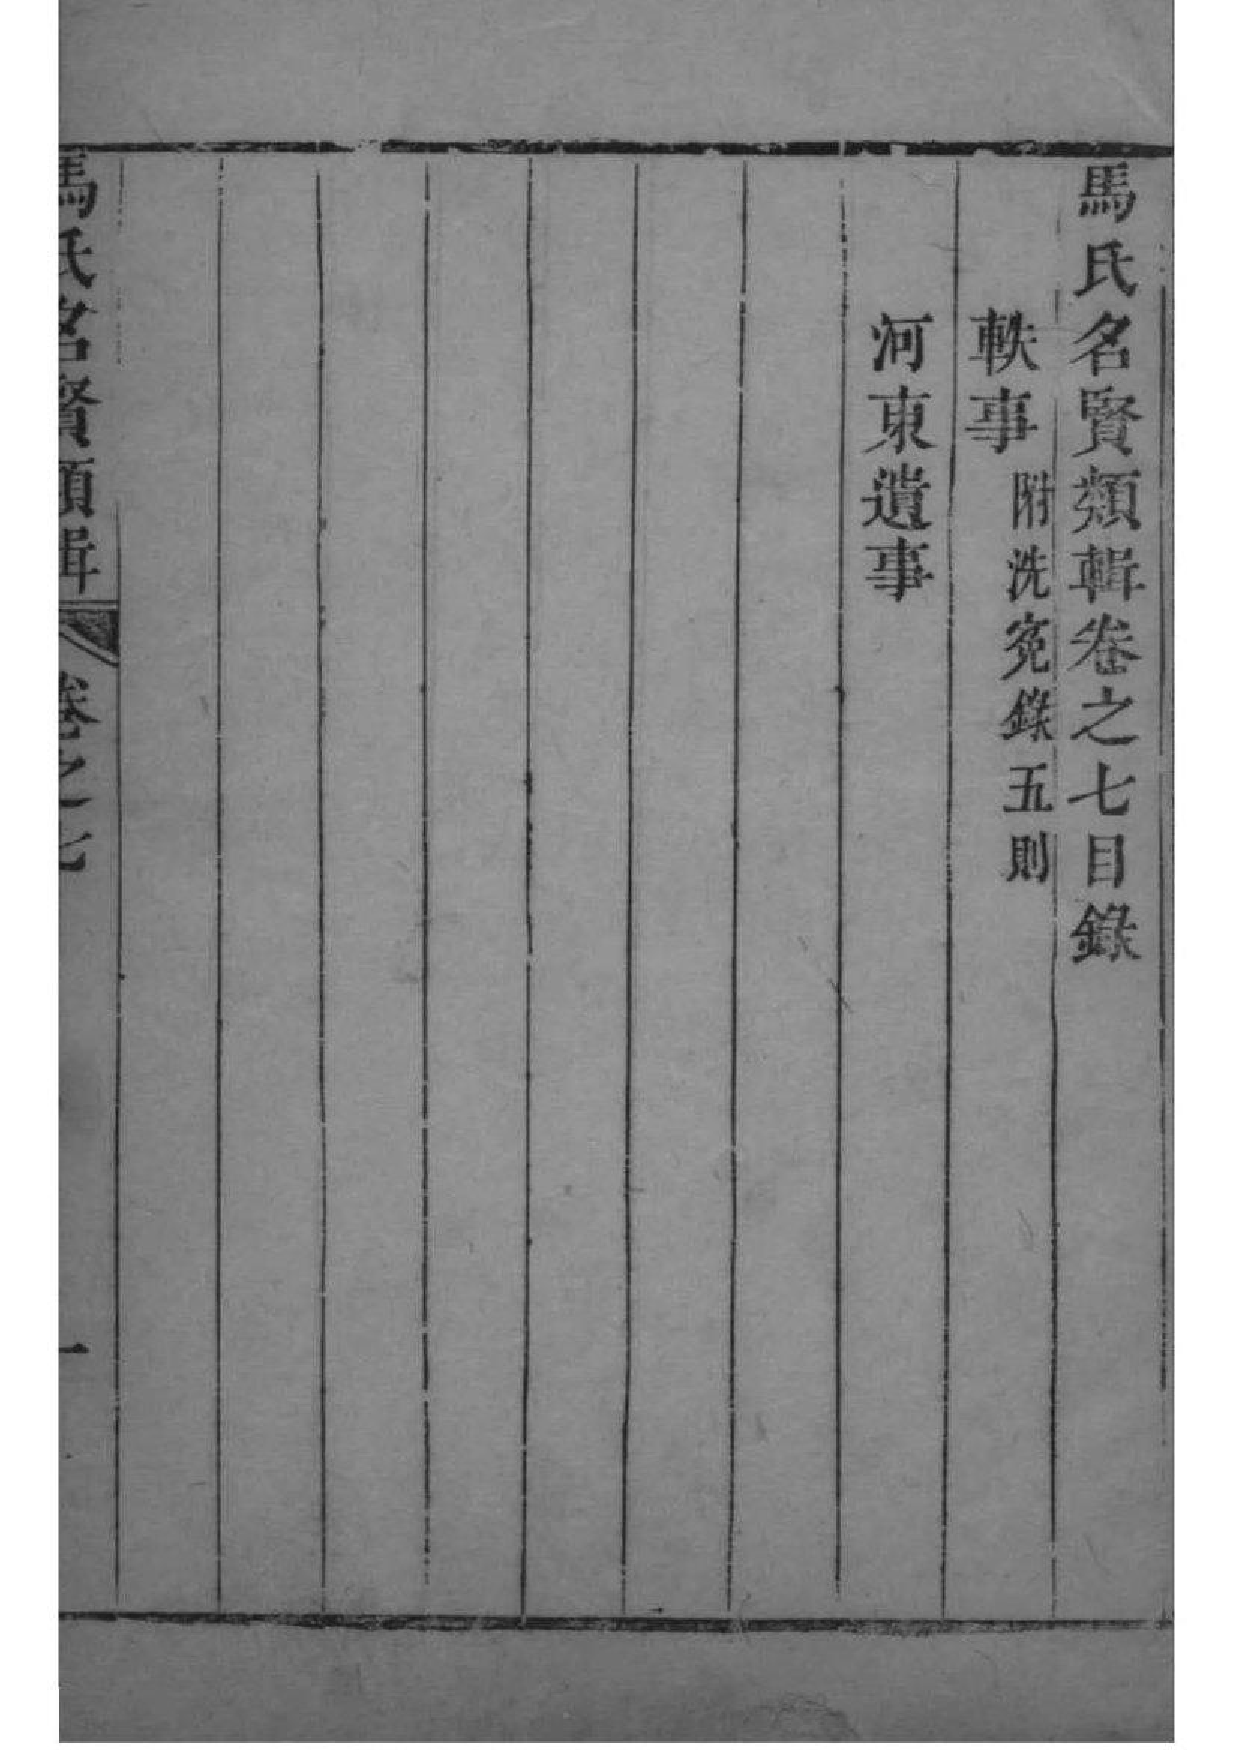 馬氏名賢類輯卷之七目錄
軼事 附洗寃錄五則
河東遺事
馬氏名賢類輯 卷之七 一